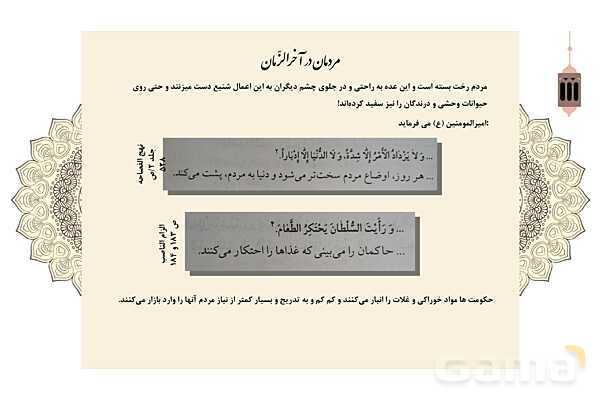 مردمان در آخرالزّمان
مردم رخت بسته است و این عده به راحتی و در جلوی چشم دیگران به این اعمال شنیع دست میزنند و حتی روی
حیوانات وحشی و درندگان را نیز سفید کرده‌اند!
امیرالمومنین (ع) می فرماید:
... وَ لاَ یَزْدَادُ الْأَمْرُ إِلَّا شِدَّةً، وَ لَا الدُّنْیَا إِلَّا إِدْبَاراً.۲
... هر روز، اوضاع مردم سخت‌تر می‌شود و دنیا به مردم، پشت می‌کند.
نهج الفصاحه
جلد ۲/ص
۵۲۸
... وَ رَأَیْتَ السُّلْطَانَ یَحْتَکِرُ الطَّعَامَ.۴
... حاکمان را می‌بینی که غذاها را احتکار می‌کنند.
الزام الناصب
ص ۱۸۳ و
۱۸۴
حکومت ها مواد خوراکی و غلات را انبار می‌کنند و کم کم و به تدریج و بسیار کمتر از نیاز مردم آنها را وارد بازار می‌کنند.
Gama